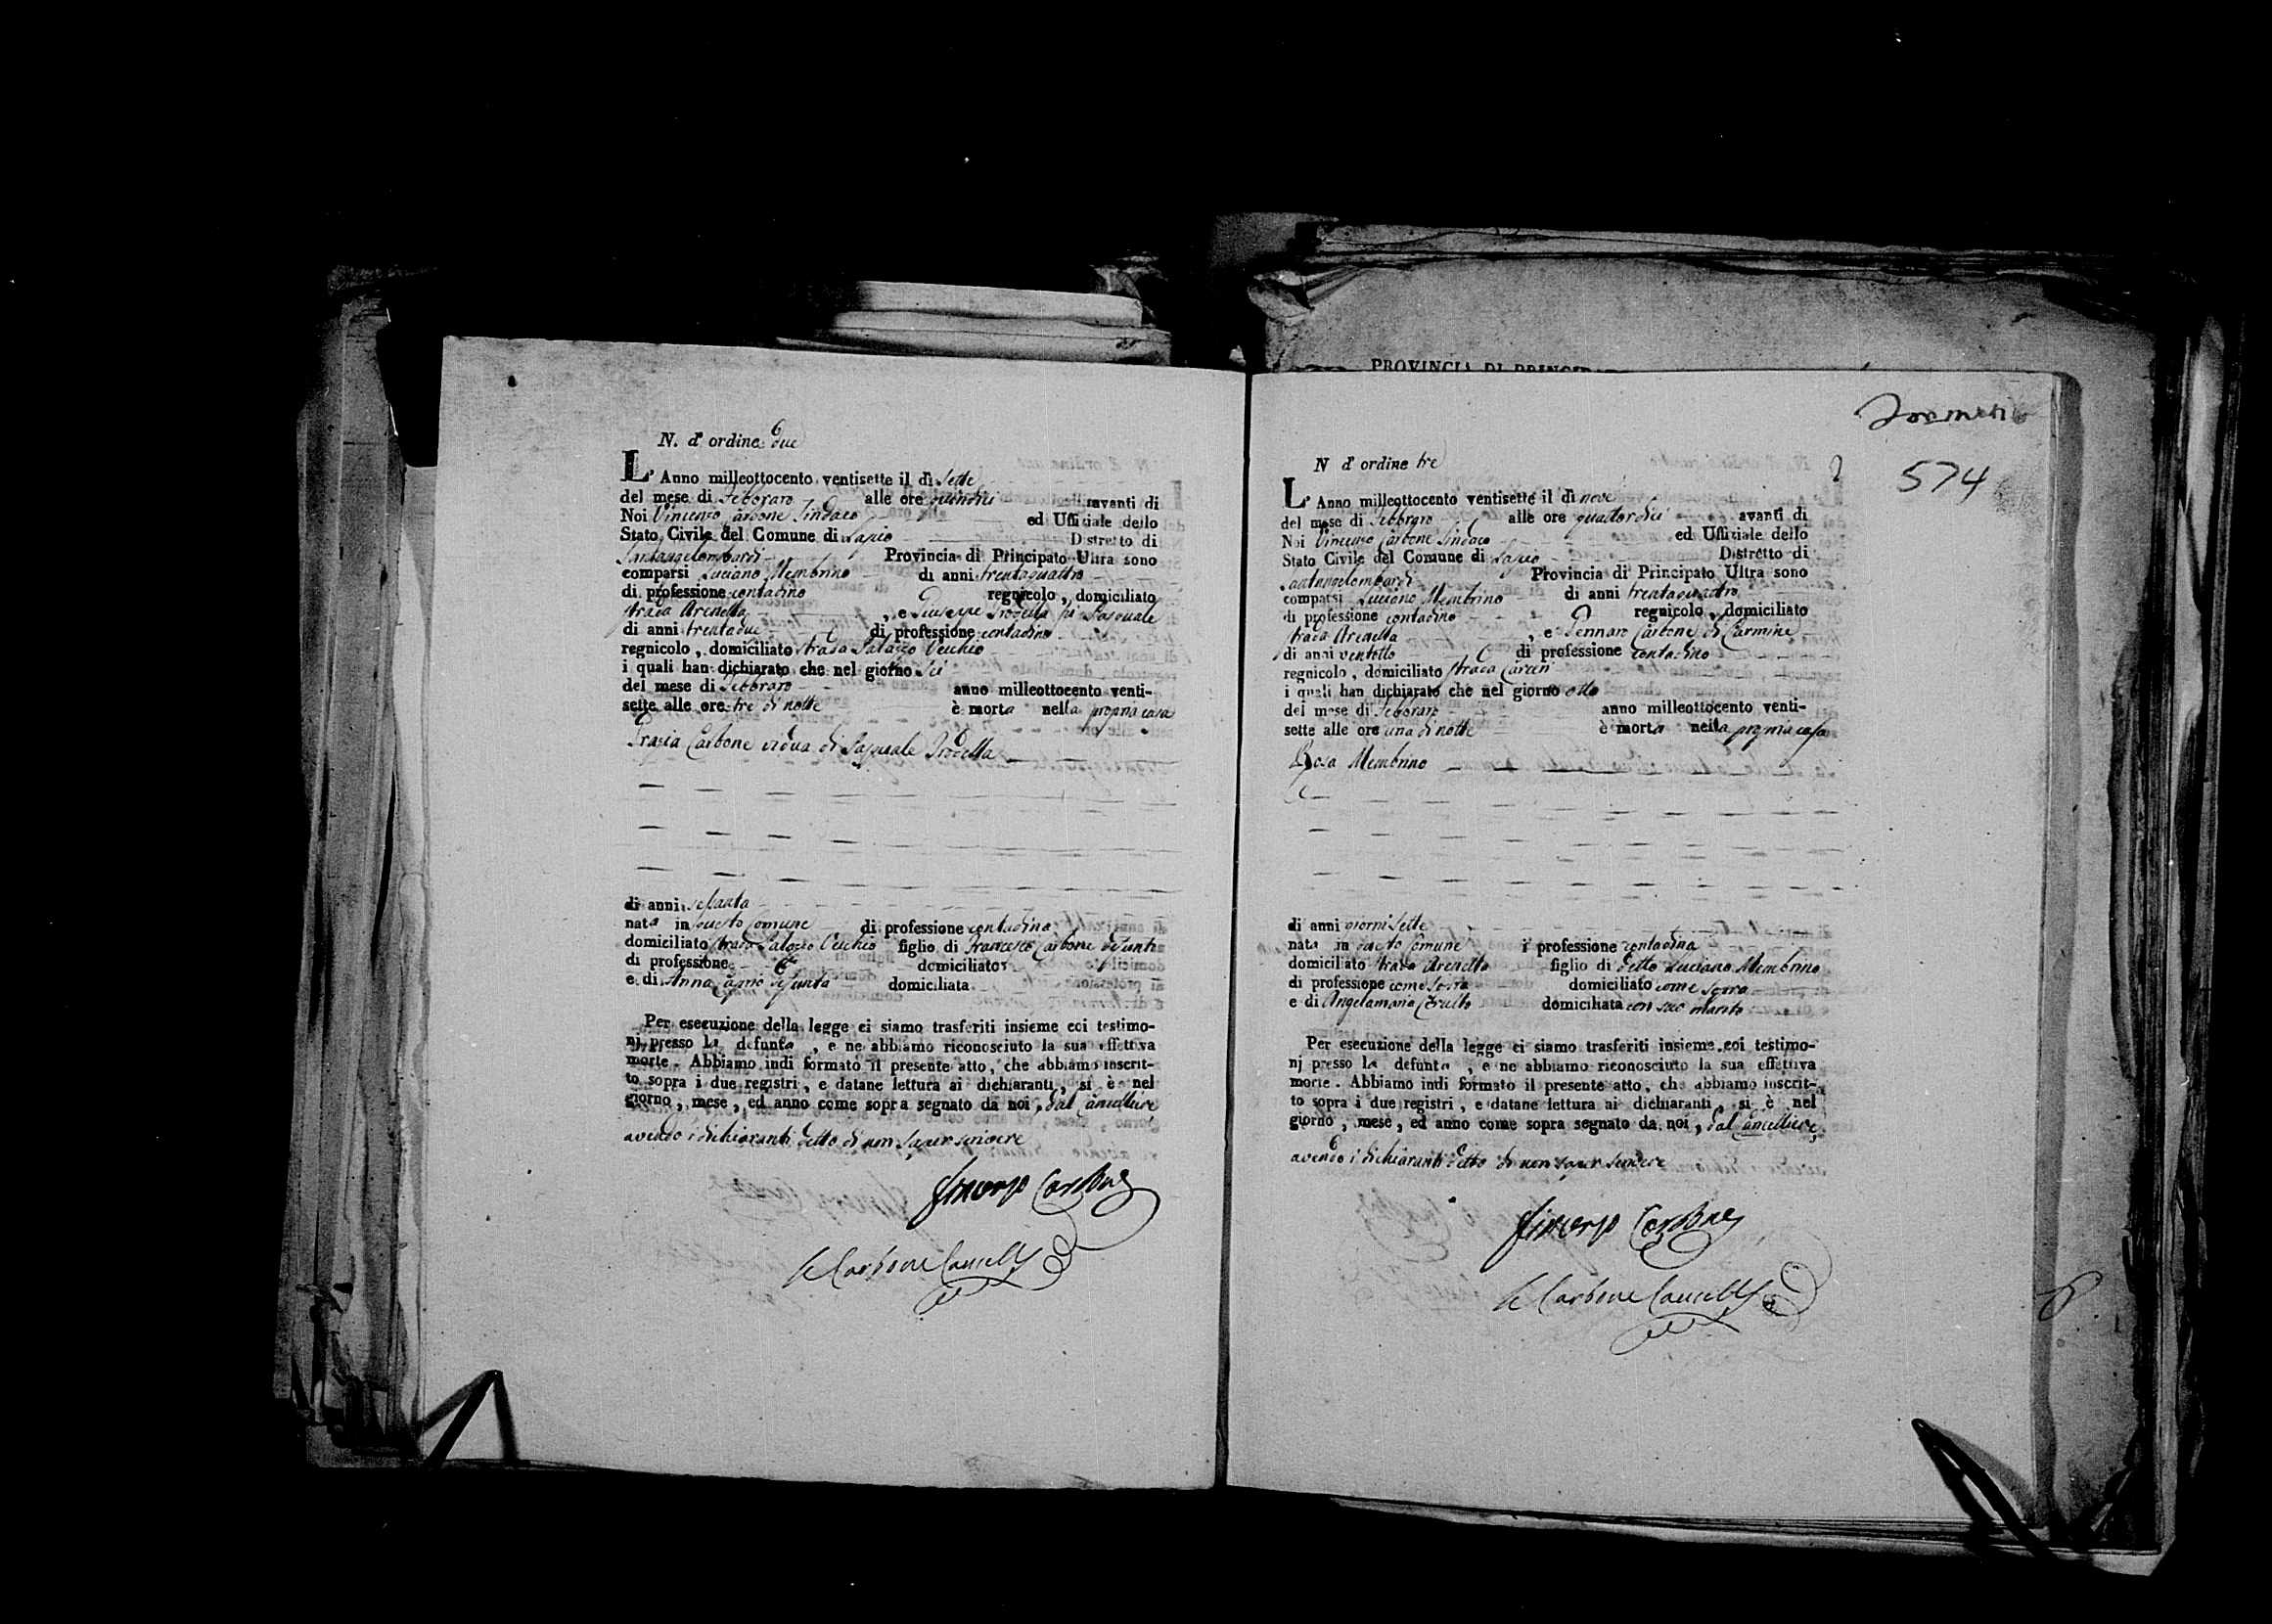 PROVINCIA DI PRINCIP
N. d'ordine due
L'Anno milleottocento ventisette il dì sette
del mese di Febbraro alle ore quindici avanti di
Noi Vincenzo Carbone Sindaco ed Uffiziale dello
Stato Civile del Comune di Lapio Distretto di
Santangelombardi Provincia di Principato Ultra sono
comparsi Luciano Membrino di anni trentaquattro
di professione contadino regnicolo, domiciliato
strada Arenella, e Giuseppe Trodella fu Pasquale
di anni trentadue di professione contadino
regnicolo, domiciliato strada Palazzo Vecchio
i quali han dichiarato che nel giorno sei
del mese di Febbraro anno milleottocento venti-
sette alle ore tre di notte è morta nella propria casa
Grazia Carbone vidua di Pasquale Trodella
di anni
nata in questo Comune di professione contadina
domiciliato strada Palazzo Vecchio figlio di Francesco Carbone defunti
di professione domiciliato
e di Anna defunta domiciliata
Per esecuzione della legge ci siamo trasferiti insieme coi testimo-
nj presso la defunta, e ne abbiamo riconosciuto la sua effettiva
morte. Abbiamo indi formato il presente atto, che abbiamo inscrit-
to sopra i due registri, e datane lettura ai dichiaranti, si è nel
giorno, mese, ed anno come sopra segnato da noi, dal Cancelliere
avendo i dichiaranti detto di non saper scrivere
Vincenzo Carbone
Carbone Cancell
574
N d'ordine tre
L'Anno milleottocento ventisette il dì nove
del mese di Febbraro alle ore quattordici avanti di
Noi Vincenzo Carbone Sindaco ed Uffiziale dello
Stato Civile del Comune di Lapio Distretto di
Santangelombardi Provincia di Principato Ultra sono
comparsi Luciano Membrino di anni trentaquattro
di professione contadino regnicolo, domiciliato
strada Arenella, e Gennaro Carbone di Carmine
di anni ventotto di professione contadino
regnicolo, domiciliato strada Carceri
i quali han dichiarato che nel giorno otto
del mese di Febbraro anno milleottocento venti-
sette alle ore una di notte è morta nella propria casa
Rosa Membrino
di anni giorni sette
nata in questo Comune di professione contadina
domiciliato strada Arenella figlio di detto Luciano Membrino
di professione come sovra domiciliato come sovra
e di Angelamaria domiciliata con suo marito
Per esecuzione della legge ci siamo trasferiti insieme coi testimo-
nj presso la defunta, e ne abbiamo riconosciuto la sua effettiva
morte. Abbiamo indi formato il presente atto, che abbiamo inscrit-
to sopra i due registri, e datane lettura ai dichiaranti si è nel
giorno, mese, ed anno come sopra segnato da noi, dal Cancelliere,
avendo i dichiaranti detto di non saper scrivere
Vincenzo Carbone
Carbone Cancell